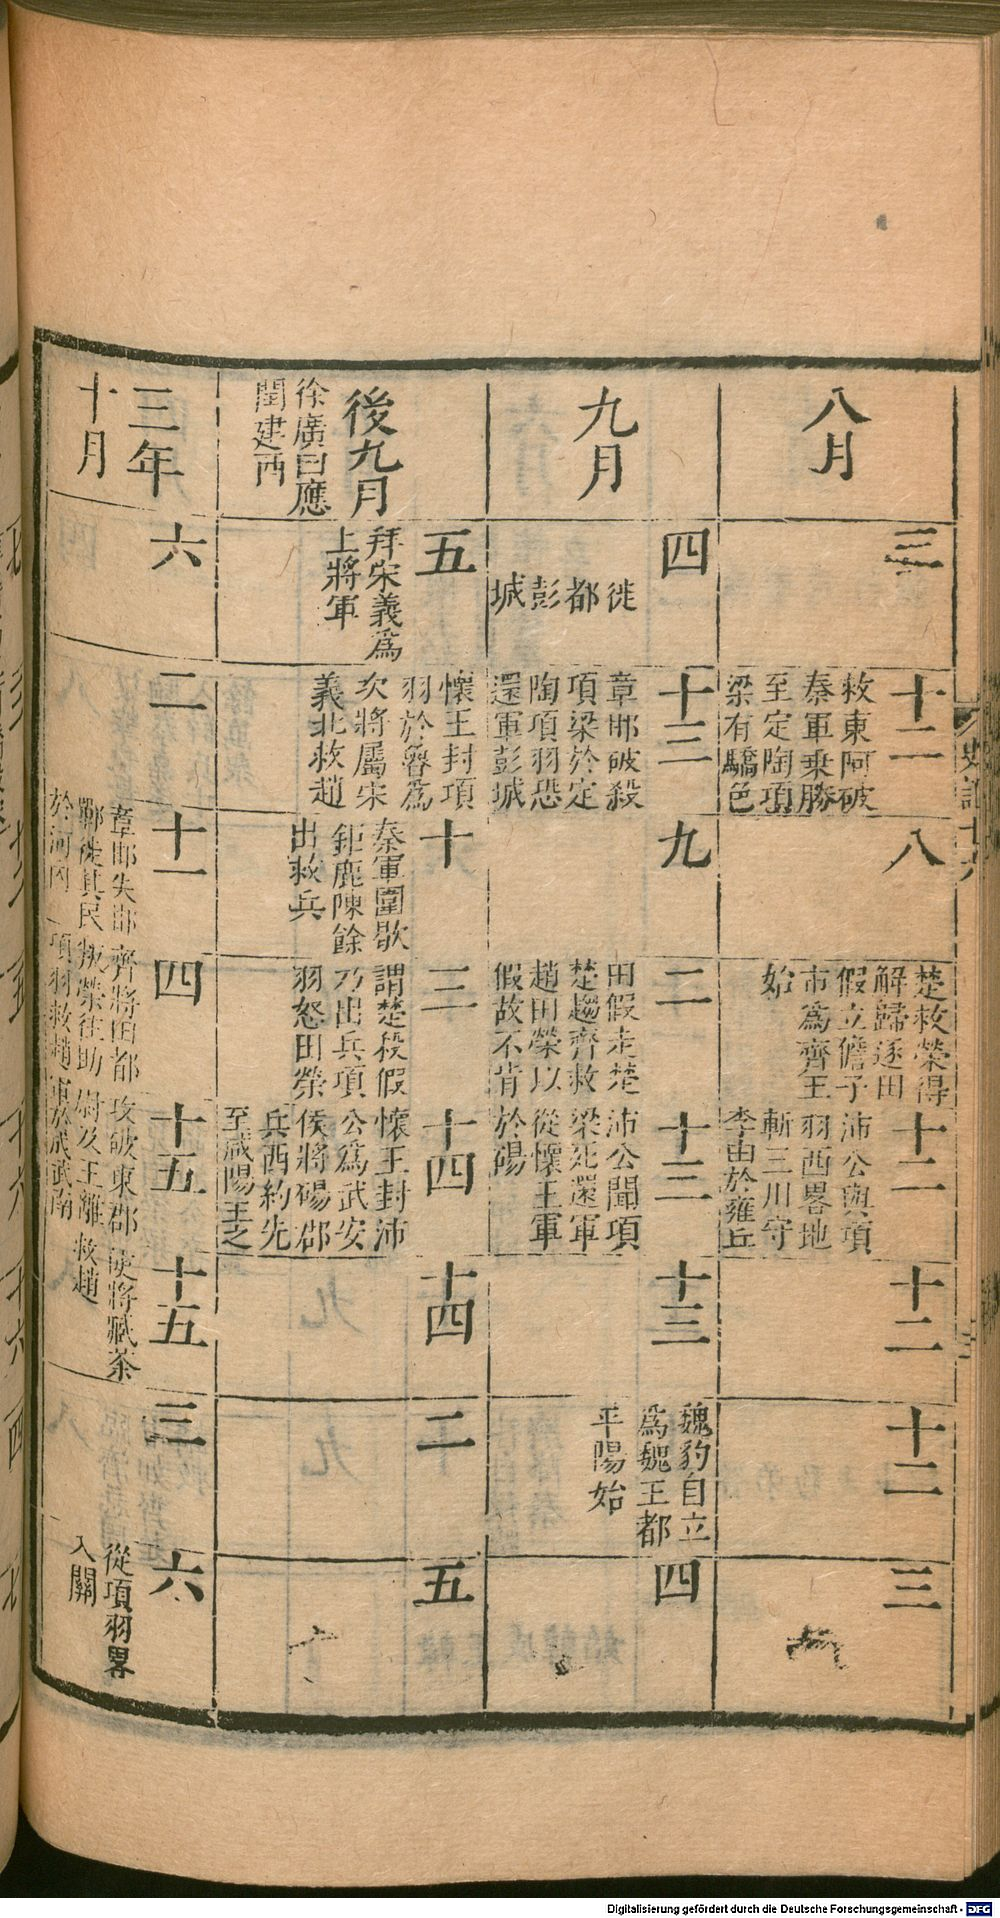 八月
三
十二
救東阿破
秦軍乗勝
至定陶項
梁有驕色
八
楚救榮得
解歸逐田
假立儋子
市爲齊王
始
十二
沛公與項
羽西畧地
斬三川守
李由於雍丘
十二
十二
三
九月
四
徙
都
彭
城
十三
章邯破殺
項梁於定
陶項羽恐
還軍彭城
九
二
田假走楚
楚趨齊救
趙田榮以
假故不肯
十三
沛公聞項
梁死還軍
從懷王軍
於碭
十三
魏豹自立
爲魏王都
平陽始
四
後九月
徐廣曰應
閏建酉
五
拜宋義爲
上將軍
懷王封項
羽於魯爲
次將屬宋
義北救趙
十
秦軍圍歇
鉅鹿陳餘
出救兵
三
謂楚殺假
乃出兵項
羽怒田榮
十四
懷王封沛
公爲武安
侯將碭郡
兵西約先
至咸陽王之
十四
二
五
三年
十月
六
二
十一
章邯失邯
鄲徙其民
於河內
四
齊將田都
叛榮往助
項羽救趙
十五
攻破東郡
尉及王離
軍於成武南
十五
使將臧荼
救趙
三
六
從項羽畧
入關
史記十六
Digitalisierung gefördert durch die Deutsche Forschungsgemeinschaft - DFG